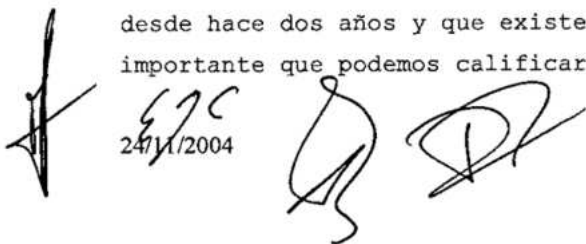 desde hace dos años y que existe
importante que podemos calificar
24/11/2004